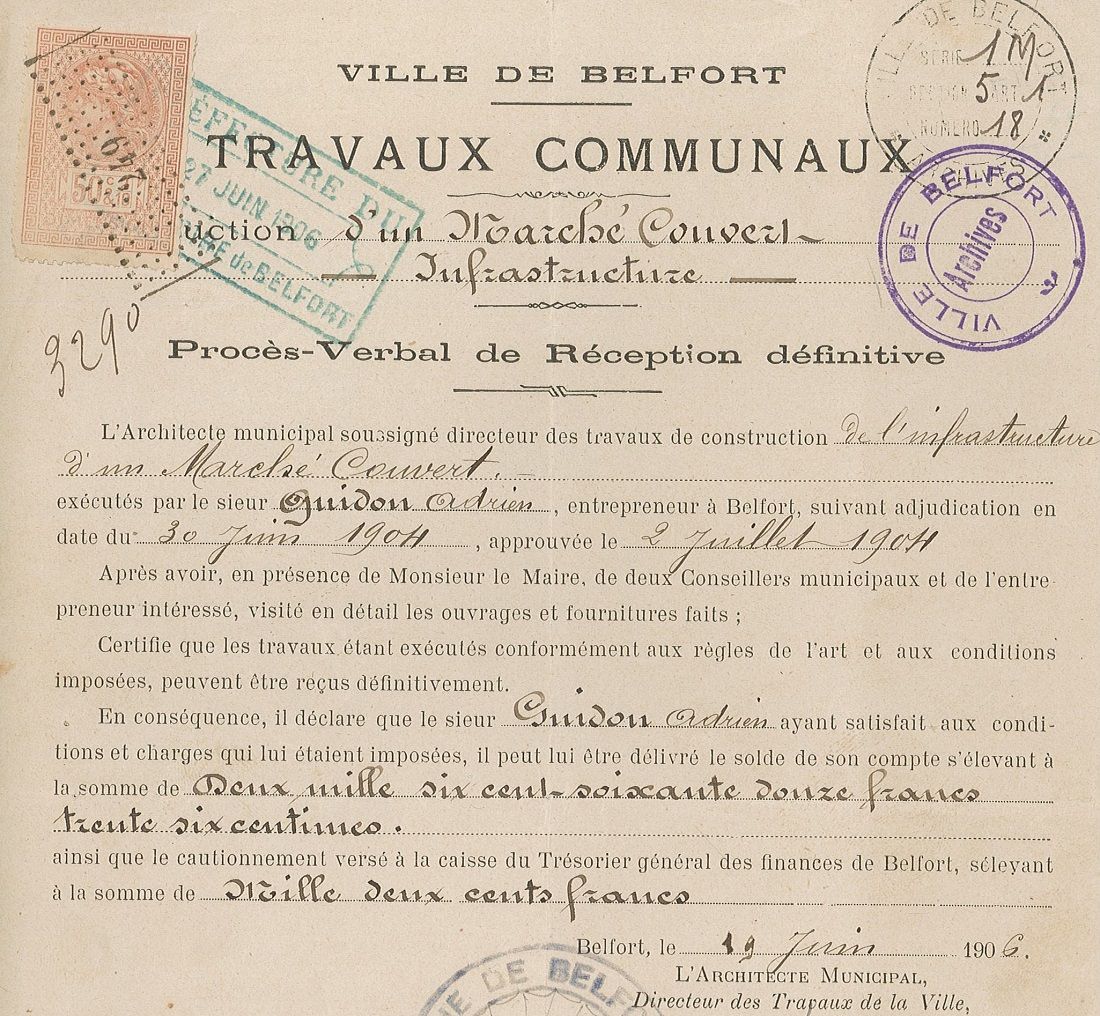 VILLE DE BELFORT
TRAVAUX COMMUNAUX
VILLE DE BELFORT
SERIE 1 M
SECTION 5 ART 1
NUMERO 18
ARCHIVES
VILLE DE BELFORT
Archives
249
50
ÉFECTURE DU
27 JUIN 1906
de BELFORT
uction d'un Marché Couvert
Infrastructure
3290
Procès-Verbal de Réception définitive
L'Architecte municipal soussigné directeur des travaux de construction de l'infrastructure
d'un Marché Couvert.
exécutés par le sieur Guidon Adrien, entrepreneur à Belfort, suivant adjudication en
date du 30 Juin 1904, approuvée le 2 Juillet 1904
Après avoir, en présence de Monsieur le Maire, de deux Conseillers municipaux et de l'entre
preneur intéressé, visité en détail les ouvrages et fournitures faits ;
Certifie que les travaux étant exécutés conformément aux règles de l'art et aux conditions
imposées, peuvent être reçus définitivement.
En conséquence, il déclare que le sieur Guidon Adrien ayant satisfait aux condi-
tions et charges qui lui étaient imposées, il peut lui être délivré le solde de son compte s'élevant à
la somme de Deux mille six cent soixante douze francs
trente six centimes.
ainsi que le cautionnement versé à la caisse du Trésorier général des finances de Belfort, sélevant
à la somme de Mille deux cents francs
Belfort, le 19 Juin 1906.
L'ARCHITECTE MUNICIPAL,
Directeur des Travaux de la Ville,
DE BELF